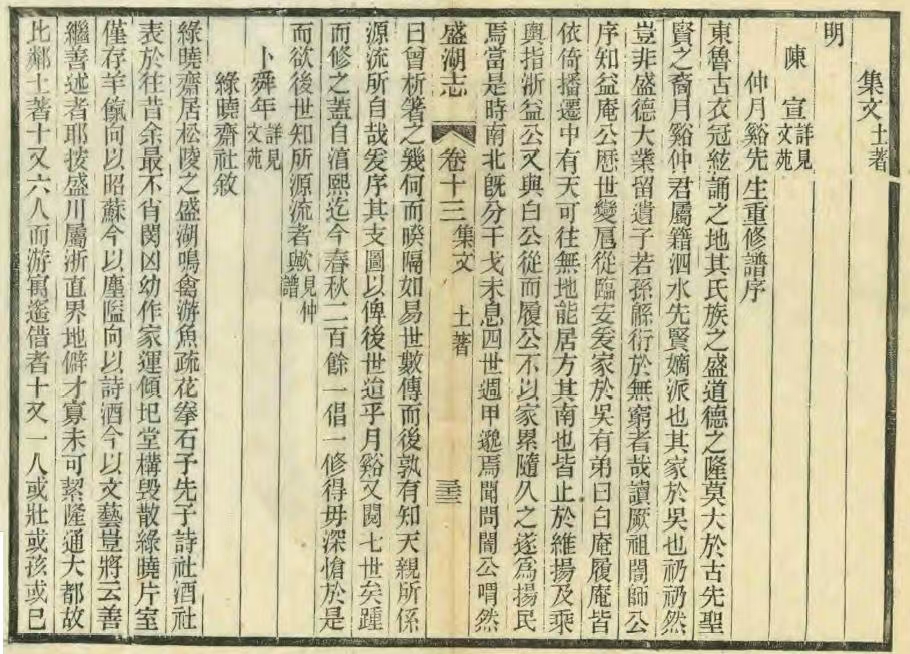 集文土著
明
陳宣詳見文苑
仲月谿先生重修譜序
東魯古衣冠絃誦之地其氏族之盛道德之隆莫大於古先聖
賢之裔月谿仲君屬籍泗水先賢嫡派也其家於吳也礽礽然
豈非盛德大業留遺子若孫緜衍於無窮者哉讀厥祖誾師公
序知益庵公歴世變扈從臨安爰家於吳有弟曰白庵履庵皆
依倚播遷中有天可往無地能居方其南也皆止於維揚及乘
輿指浙益公又與白公從而履公不以家累隨久之遂爲揚民
焉當是時南北旣分干戈未息四世週甲邈焉聞問闇公喟然
盛湖志
卷十三集文
土著
三三
曰曾析箸之幾何而暌隔如易世數傳而後孰有知天親所係
源流所自哉爰序其支圖以俾後世迨乎月谿又閱七世矣踵
而修之蓋自淯熙迄今春秋二百餘一倡一修得毋深愴於是
而欲後世知所源流者歟見仲譜
卜舜年詳見文苑
綠曉齋社敘
綠曉齋居松陵之盛湖鳴禽游魚疏花拳石予先子詩社酒社
表於往昔余最不肖閔凶幼作家運傾圮堂構毀散綠曉片室
僅存羊餼向以昭蘇今以塵隘向以詩酒今以文藝豈將云善
繼善述者耶按盛川屬浙直界地僻才寡未可絜隆通大都故
比鄰土著十又六人而游寓遙借者十又一人或壯或孩或已